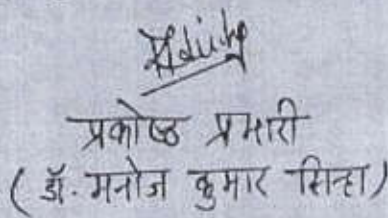 प्रकोष्ठ प्रभारी
(डॉ. मनोज कुमार सिन्हा)